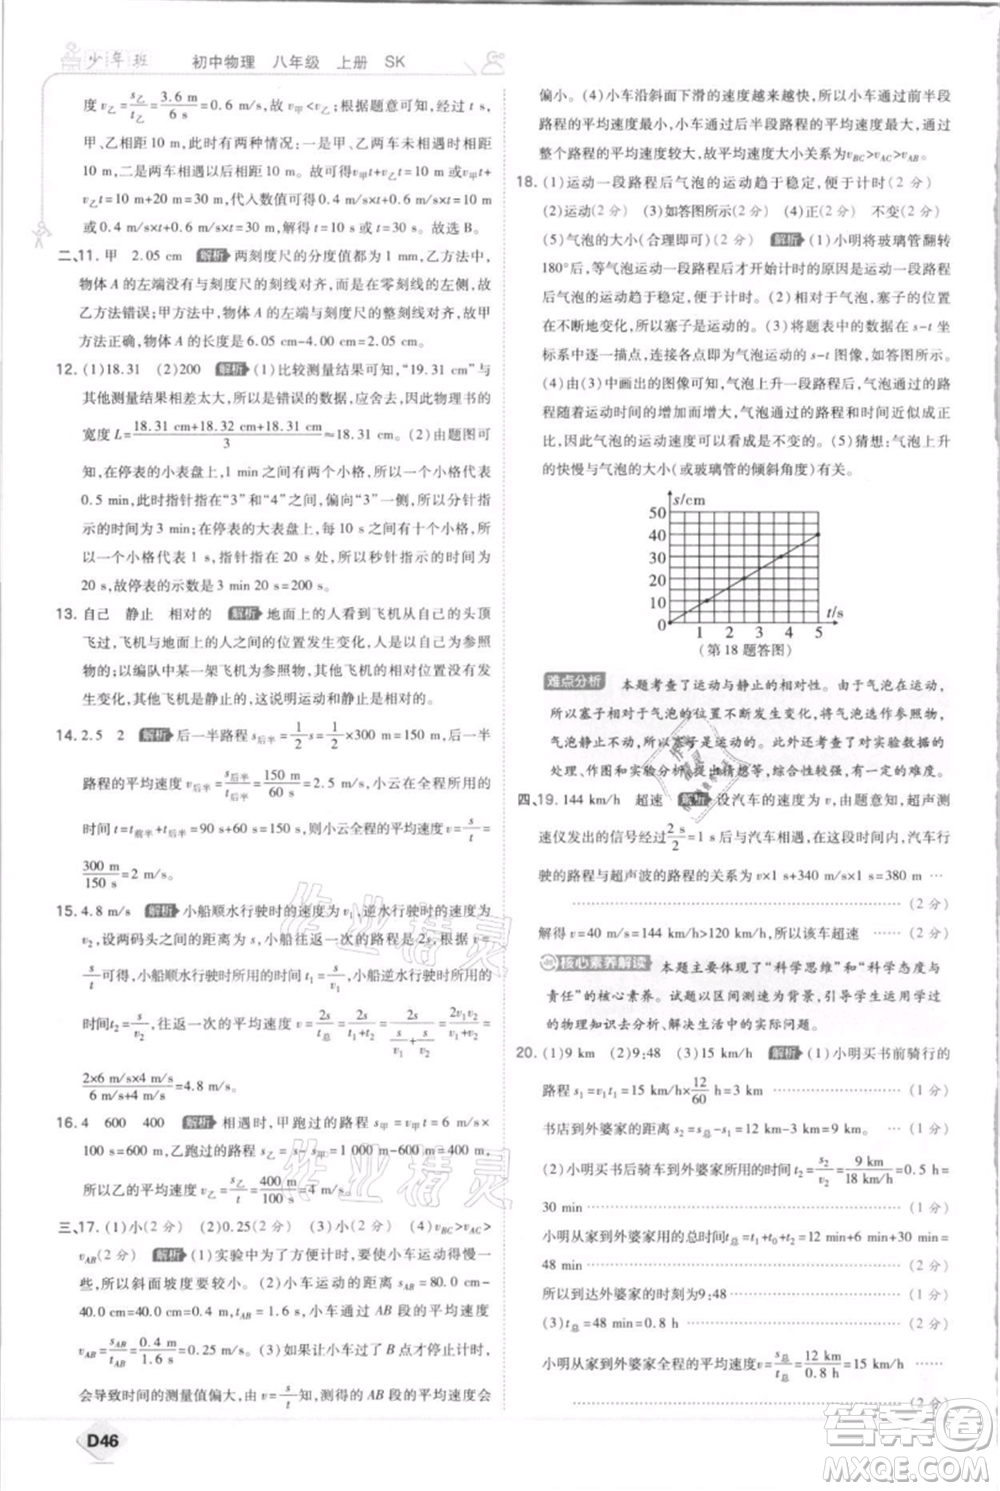 少年班 初中物理 八年级 上册 SK
度 v乙=s乙/t乙=3.6 m/6 s=0.6 m/s,故 v甲<v乙;根据题意可知,经过 t s,
甲、乙相距 10 m,此时可能有两种情况:①甲、乙两车还未相遇时相距
10 m;②两车相遇后相距 10 m。两车相遇以后相距 10 m,则有 v甲t+
v乙t=6 m+10 m,代入数值可得 0.2 m/s×t+0.6 m/s×t=6 m+
10 m,解得 t=20 s。则此时甲、乙相遇,故选 B。
二、11.甲 2.05 cm 解析 两刻度尺的分度值都为 1 mm。乙方法中
物体 A 的左端没有与刻度尺的刻线对齐,而是在零刻线的左侧,乙
方法错误;甲方法中,物体 A 的左端与刻度尺的整刻线对齐,故甲
方法正确,物体 A 的长度是 6.05 cm-4.00 cm=2.05 cm。
12.(1)18.31 (2)200 解析 (1)比较测量结果可知,“19.31 cm”与
其他测量结果相差太大,是错误的数据,应舍去,因此物理书的
宽度 L=18.31 cm+18.32 cm+18.31 cm/3=18.31 cm。(2)由题图可
知,在停表的小表盘上,1 min 之间有两个小格,一个小格代表
0.5 min,此时指针指在“3”和“4”之间,偏向“3”一侧,所以分针指
示的时间为 3 min;在停表的大表盘上,每 10 s 之间有 10 个小格,
所以一个小格代表 1 s,指针指在 20 s 处,所以秒针指示的时间为
20 s,故停表的示数是 3 min 20 s=200 s。
13.自己 静止 相对的 解析 地面上的人看到飞机从自己的头顶
飞过,飞机与地面上的人之间的位置发生变化,人是以自己为参照
物的;以编队中某一架飞机为参照物,其余的飞机相对位置没有
发生变化,所以是静止的,这说明运动和静止是相对的。
14.2.5 2 解析 后一半路程 s后半=1/2s=1/2×300 m=150 m,后一半
路程的平均速度 v后半=s后半/t后半=150 m/60 s=2.5 m/s,小云全程所用的
时间 t=t前半+t后半=90 s+60 s=150 s,则小云全程的平均速度 v=s/t=
300 m/150 s=2 m/s。
15.4.8 m/s 解析 设小船顺水行驶时的速度为 v1,逆水行驶时的速度为
v2,设两码头之间的距离为 s,小船往返一次的路程为 2s,根据 v=
s/t可得,小船顺水行驶所用的时间 t1=s/v1,小船逆水行驶所用的时
间t2=s/v2,往返一次的平均速度 v=2s/t总=2s/t1+t2=2s/s/v1+s/v2=2v1v2/v1+v2=
2×6 m/s×4 m/s/6 m/s+4 m/s=4.8 m/s。
16.4 600 400 解析 相遇时,甲跑过的路程 s甲=v甲t=6 m/s×
100 s=600 m,乙跑过的路程 s乙=s-s甲=1 000 m-600 m=400 m,
所以乙的平均速度 v乙=s乙/t=400 m/100 s=4 m/s。
三、17.(1)小(2 分) (2)0.25(2 分) (3)小(2 分) (4)vBC>vAC>
vAB(2 分) 解析 (1)实验中为了方便计时,要使小车运动得慢一
些,所以斜面坡度要较小。(2)小车运动的距离 sAB=80.0 cm-
40.0 cm=40.0 cm=0.4 m,tAB=1.6 s,小车通过 AB 段的平均速度
vAB=sAB/tAB=0.4 m/1.6 s=0.25 m/s。(3)如果让小车过了 B 点才停止计时,
会导致时间的测量值偏大,由 v=s/t知,测得的 AB 段的平均速度会
D46
偏小。(4)小车沿斜面下滑的速度越来越快,所以前半段
路程的平均速度最小,小车后半段路程的平均速度大于
整个路程的平均速度,故平均速度大小关系为vBC>vAC>vAB。
18.(1)运动一段路程后气泡的运动趋于稳定,便于计时(2 分)
(2)运动(2 分) (3)如答图所示(2 分) (4)正 不变(2 分)
(5)气泡的大小(合理即可)(2 分) 解析 (1)小明将玻璃管翻转
180°后,等气泡运动一段路程后才开始计时的原因是气泡运动
一段路程后运动趋于稳定,便于计时。(2)相对于气泡,塞子的位置
在不断地变化,所以塞子是运动的。(3)将题表中的数据在 s-t 图
像中逐一描点,然后用线连接起来,即气泡运动的 s-t 图像,
如答图所示。(4)由(3)中画出的图像可知,气泡上升一段路程后,
路程随着运动时间的增加而增大,气泡上升的路程与时间近似成
正比,因此气泡的运动速度可以看成是不变的。(5)猜想:气泡上升
的快慢与气泡的大小(或玻璃管的倾斜角度)有关。
s/cm
50
40
30
20
10
0 1 2 3 4 5 t/s
(第 18 题答图)
难点分析 本题考查了运动与静止的相对性。由于气泡在运动,
所以塞子相对于气泡的位置不断发生变化,当选气泡作参照物,
气泡静止不动,所以塞子是运动的。此外还考查了对实验数据
的处理、作图和实验分析、猜想的能力,综合性较强,有一定难度。
四、19.144 km/h 超速 解析 设汽车的速度为 v,由题意知,超声测
速仪发出的信号经过2 s/2=1 s与汽车相遇,在这段时间内,汽车行
驶的路程与超声波的路程的关系为 v×1 s+340 m/s×1 s=380 m ……
……(2 分)
解得 v=40 m/s=144 km/h>120 km/h,所以该车超速 ……(2 分)
核心素养解读 本题主要体现了“科学思维”和“科学态度与
责任”的核心素养。试题以区间测速为背景,引导学生运用学过
的物理知识去分析、解决生活中的实际问题。
20.(1)9 km (2)9:48 (3)15 km/h 解析 (1)小明买书前骑行的
路程 s1=v1t1=15 km/h×12/60 h=3 km ……(1 分)
书店到外婆家的距离 s2=s总-s1=12 km-3 km=9 km ……(1 分)
(2)小明买书后骑车到外婆家所用的时间 t2=s2/v2=9 km/18 km/h=0.5 h=
30 min ……(1 分)
小明从家到外婆家用的总时间 t总=12 min+6 min+30 min=
48 min ……(2 分)
所以到达外婆家的时刻为9:48 ……(1 分)
(3)t总=48 min=0.8 h ……(2 分)
小明从家到外婆家全程的平均速度v=s总/t总=12 km/0.8 h=15 km/h
……(2 分)
作业精灵
作业精灵
答案圈
MXQE.COM